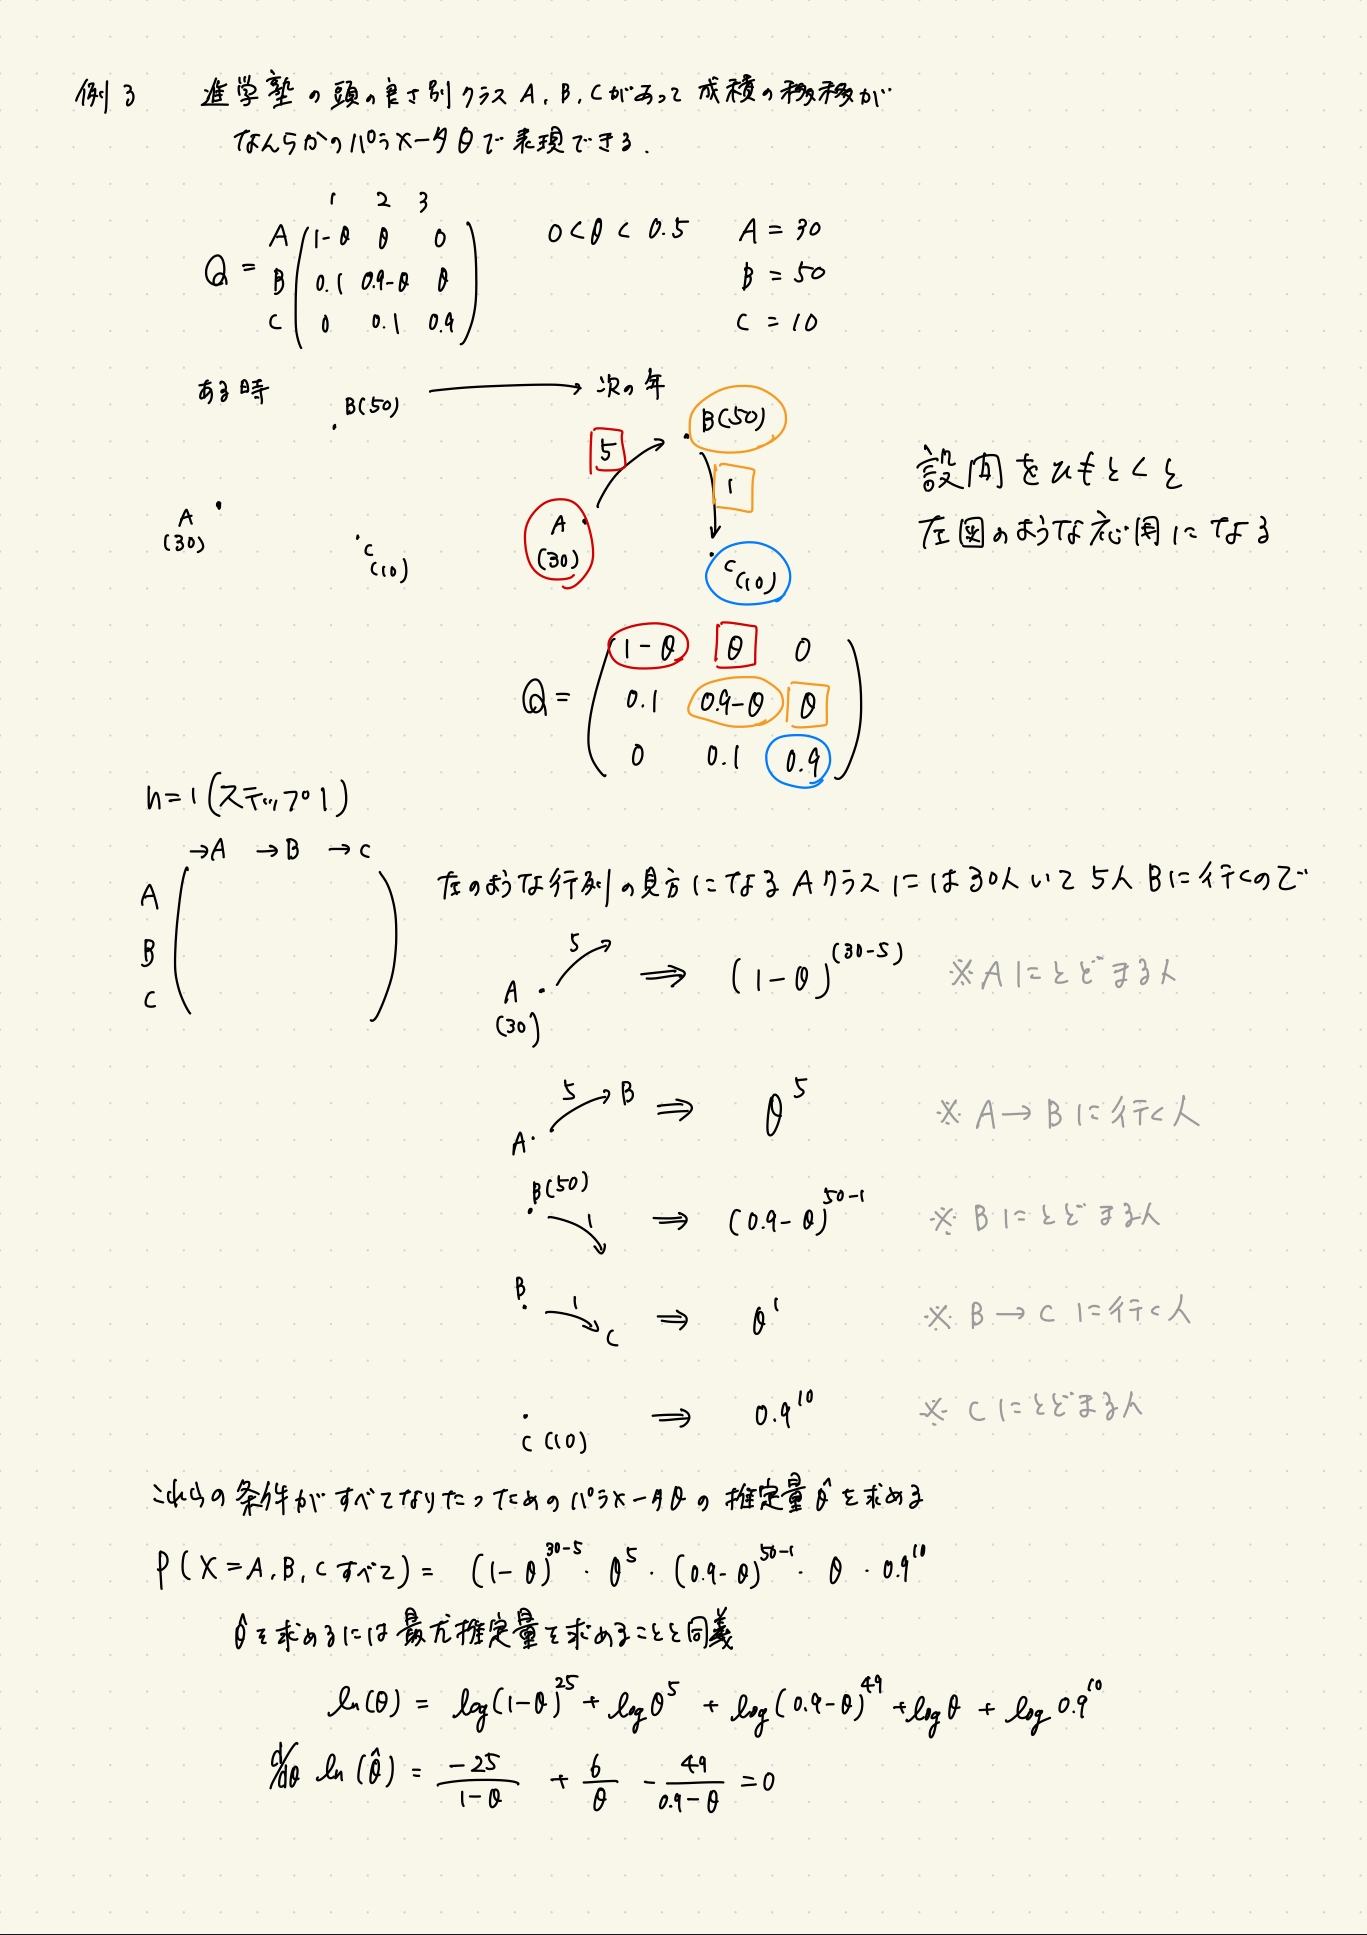 例3 進学塾の頭の良さ別クラス A, B, Cがあって 成績の移移が
なんらかのパラメータθで表現できる.
1 2 3
A 1-θ θ 0
Q = B 0.1 0.9-θ θ
C 0 0.1 0.9
0<θ< 0.5
A = 30
B = 50
C = 10
ある時 → 次の年
B(50)
A
(30)
C
(10)
5
B(50)
1
A
(30)
C
(10)
設問をひもとくと
左図のような応用になる
1-θ θ 0
Q = 0.1 0.9-θ θ
0 0.1 0.9
n=1 (ステップ1)
→A →B →C
A
B
C
左のような行列の見方になる Aクラスには30人いて 5人 Bに行くので
5
A ⇒ (1-θ)^(30-5) ※Aにとどまる人
(30)
A 5 → B ⇒ θ^5 ※ A→Bに行く人
B(50) 1 ⇒ (0.9-θ)^50-1 ※ Bにとどまる人
B 1 → C ⇒ θ^1 ※ B→C に行く人
C (10) ⇒ 0.9^10 ※ Cにとどまる人
これらの条件がすべてなりたったためのパラメータθの推定量θ̂を求める
P(X=A,B,Cすべて) = (1-θ)^30-5 · θ^5 · (0.9-θ)^50-1 · θ · 0.9^10
θ̂を求めるには最尤推定量を求めることと同義
ln(θ) = log(1-θ)^25 + logθ^5 + log(0.9-θ)^49 + logθ + log 0.9^10
d/dθ ln(θ̂) = -25/1-θ + 6/θ - 49/0.9-θ = 0